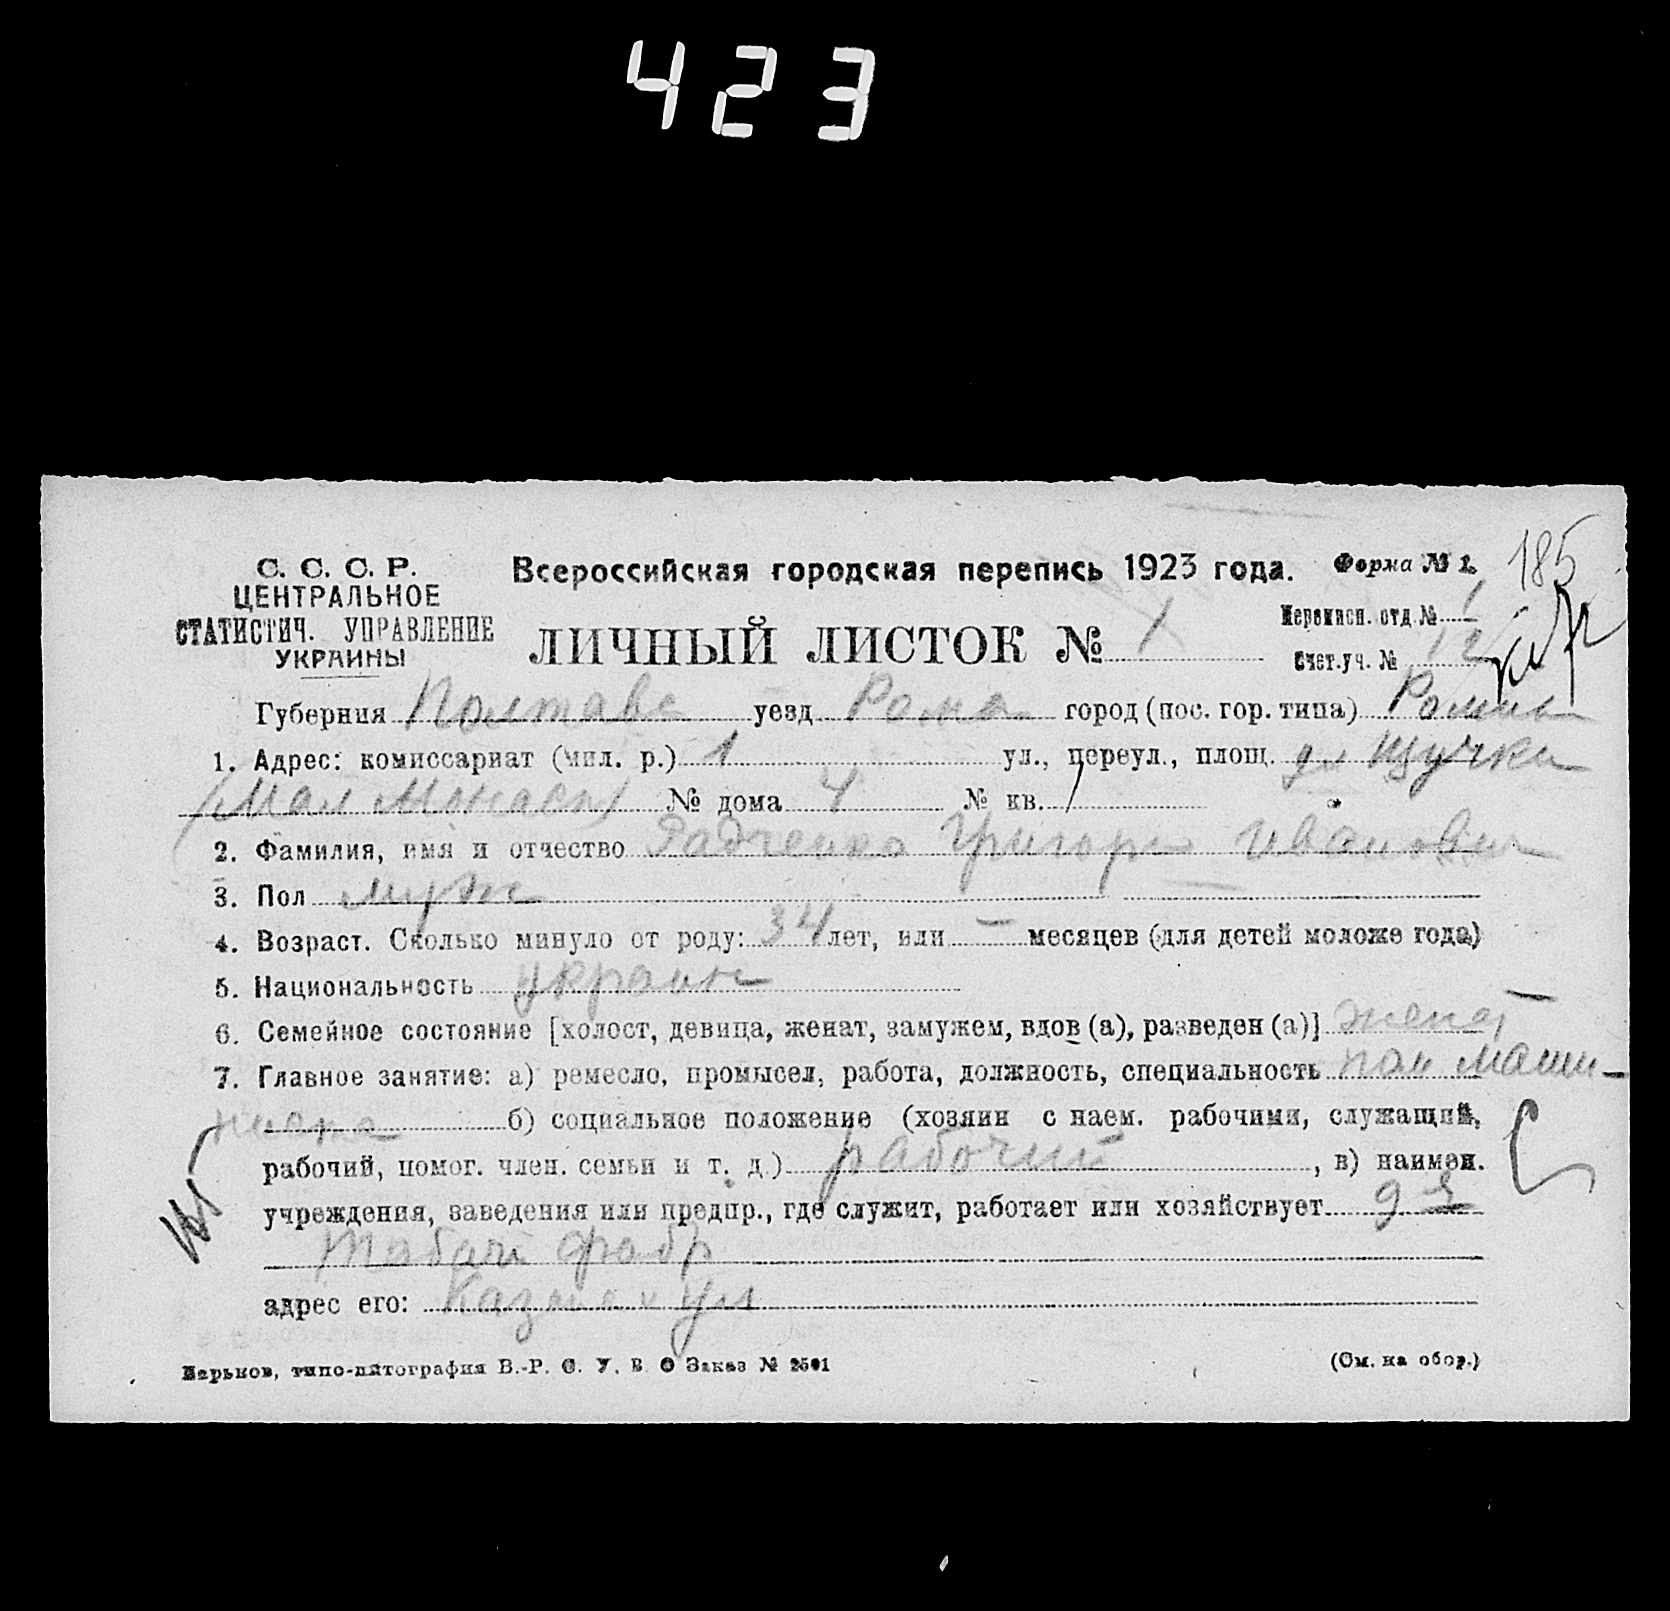 423
С. С. С. Р.
ЦЕНТРАЛЬНОЕ
СТАТИСТИЧ. УПРАВЛЕНИЕ
УКРАИНЫ
Всероссийская городская перепись 1923 года.
Форма № 1.
185
ЛИЧНЫЙ ЛИСТОК № 1
Переписн. отд. № 1
Счет. уч. № 12
Губерния Полтавс уезд Роме город (пос. гор. типа) Ромны
1. Адрес: комиссариат (мил. р.) 1 ул., переул., площ. Щучки
(Мал Монаст) № дома 4 № кв.
2. Фамилия, имя и отчество Радченко Григори Иванович
3. Пол муж
4. Возраст. Сколько минуло от роду: 34 лет, или – месяцев (для детей моложе года)
5. Национальность украин
6. Семейное состояние [холост, девица, женат, замужем, вдов (а), разведен (а)] женат
7. Главное занятие: а) ремесло, промысел, работа, должность, специальность пом маши-
ниста б) социальное положение (хозяин с наем. рабочими, служащий,
рабочий, помог. член. семьи и т. д.) рабочий, в) наимен.
учреждения, заведения или предпр., где служит, работает или хозяйствует
Табачн фабр
адрес его: ул
Харьков, типо-литография В.-Р. С. У. В. О Заказ № 2501
(См. на обор.)